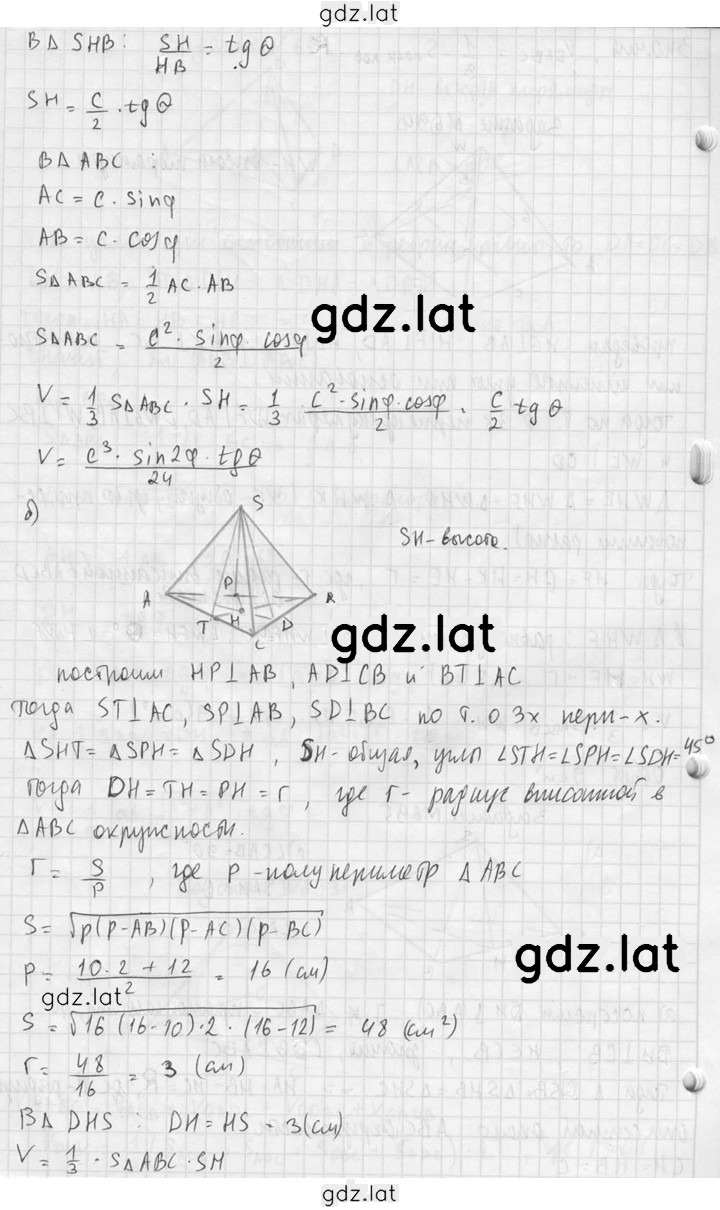 gdz.lat
В Δ SHB: SH/HB = tg θ
SH = c/2 · tg θ
В Δ ABC :
AC = c · sinφ
AB = c · cosφ
SΔABC = 1/2 AC · AB
gdz.lat
SΔABC = c² · sinφ · cosφ/2
V = 1/3 SΔABC · SH = 1/3 · c² · sinφ · cosφ/2 · c/2 tg θ
V = c³ · sin2φ · tgθ/24
б)
S
SH - высота.
A P B
T H D
C
gdz.lat
построим HP⊥AB, AD⊥CB и BT⊥AC
тогда ST⊥AC, SP⊥AB, SD⊥BC по т. о 3х перп-х.
ΔSHT = ΔSPH = ΔSDH, SH - общая, углы ∠STH=∠SPH=∠SDH=45°
тогда DH = TH = PH = r, где r - радиус вписанной в
ΔABC окружности.
r = S/p, где p - полупериметр Δ ABC
S = √p(p-AB)(p-AC)(p-BC)
gdz.lat
P = 10·2+12/2 = 16 (см)
gdz.lat
S = √16(16-10)·2·(16-12) = 48 (см²)
r = 48/16 = 3 (см)
В Δ DHS : DH = HS - 3(см)
V = 1/3 · SΔABC · SH
gdz.lat